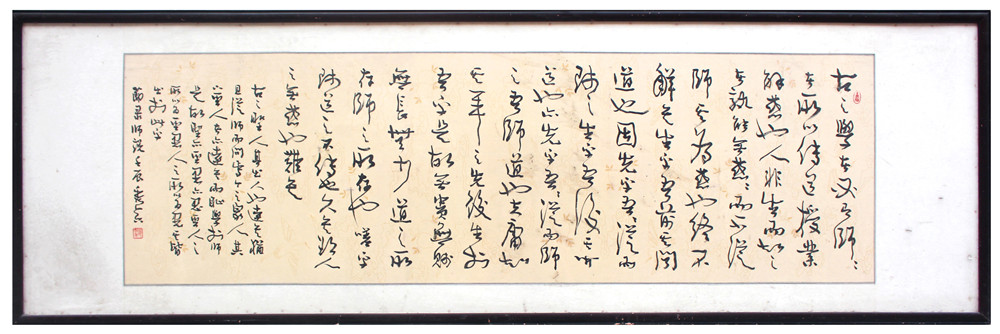 古之學者必有師〻
者所以傳道授業
解惑也人非生而知之
者孰能無惑〻而不從
師其為惑也終不
解矣生乎吾前其聞
道也固先乎吾〻從而
師之生乎吾後其聞
道也亦先乎吾〻從而師
之吾師道也夫庸知
其年之先後生於
吾乎是故無貴無賤
無長無少道之所
存師之所存也嗟乎
師道之不傳也久矣欲人
之無惑也難矣
古之聖人其出人也遠矣猶
且從師而問焉今之眾人其
聖人亦遠矣而恥學於師
是故聖益聖愚益愚聖人之
所以為聖愚人之所以為愚其皆
出於此乎
節录師說壬辰